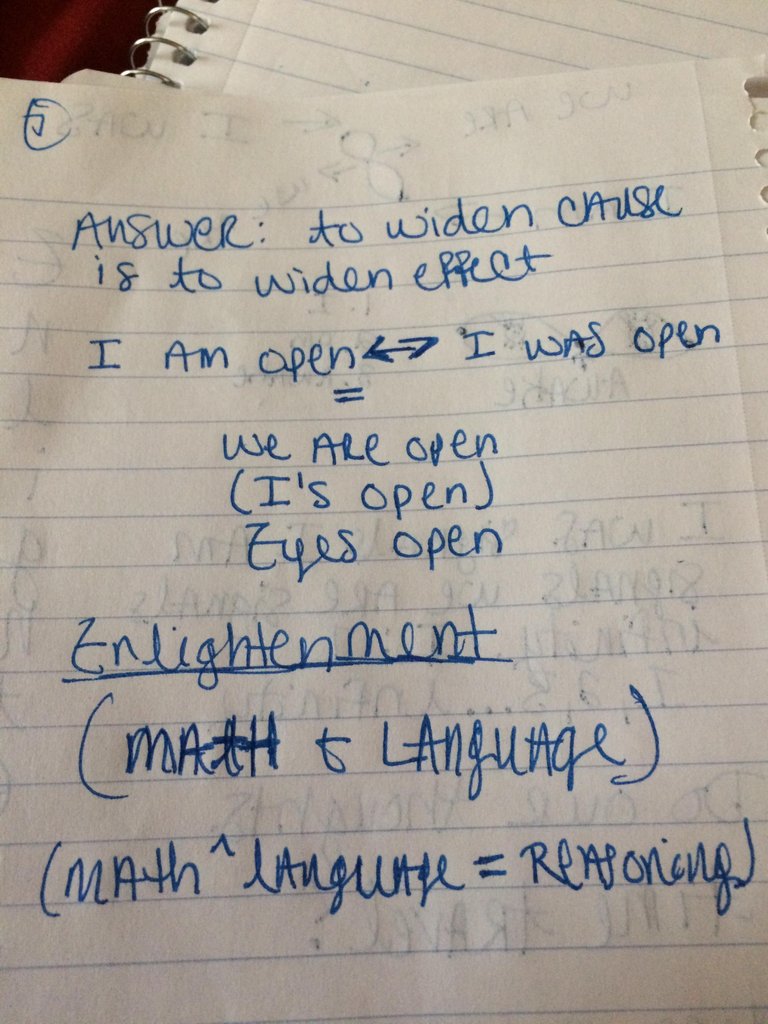 5
ANSWER: to widen CAUSE
is to widen effect
I AM open ↔ I WAS open
=
We ARe open
(I's open)
Eyes open
Enlightenment
(MAtH & LANguAge)
(MAth ^ lANguAge = ReAsoning)